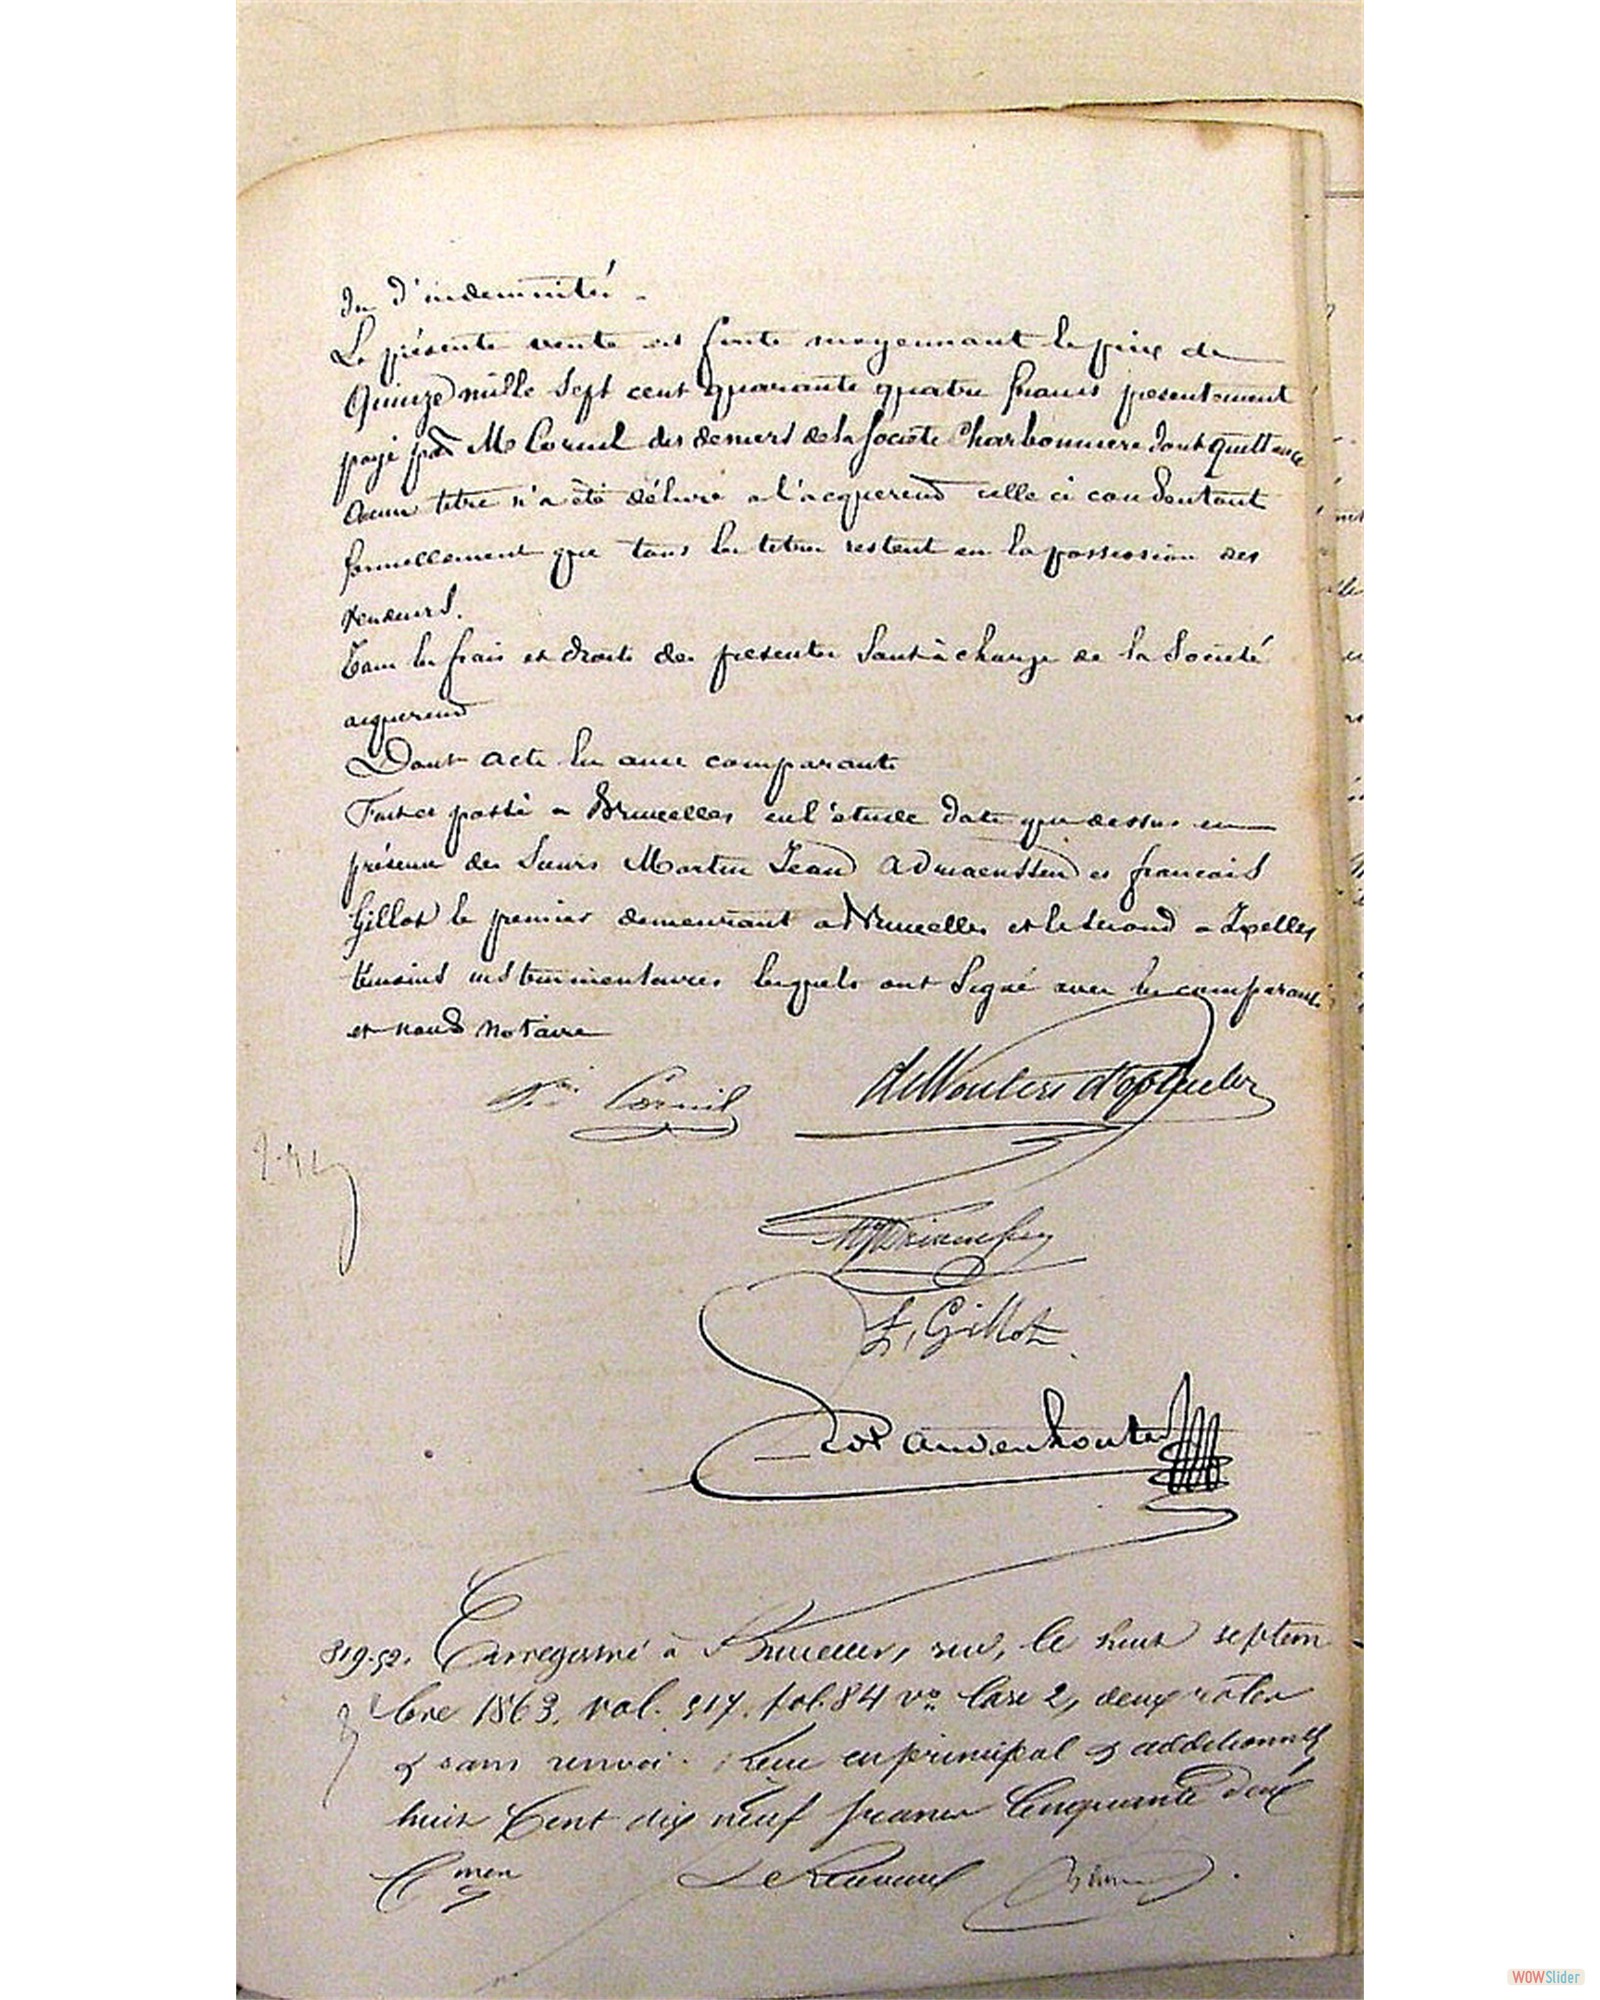 ou d'indemnité.
La présente vente est faite moyennant le prix de
Quinze mille Sept cent quarante quatre francs présentement
payé par Mr Cornil des deniers de la Société Charbonnière dont quittance
Aucun titre n'a été délivré a l'acquereur celle ci consentant
formellement que tous les titres restent en la possession des
vendeurs.
Tous les frais et droits des presentes sont à charge de la Société
acquereur
Dont acte lu aux comparants
Fait et passé a Bruxelles en l'étude date que dessus en
présence des Sieurs Martin Jean Adriaenssen et francois
Gillot le premier demeurant a Bruxelles et le second a Ixelles
témoins instrumentaires lesquels ont Signé avec les comparants
et nous Notaire
Cornil deWouters d'Oplinter
F. Gillot
Vandenhouten
819.52. Enregistré à Bruxelles, sud, le huit septem
bre 1863, vol. 517, fol. 84 vo Case 2, deux rôles
& sans renvoi. Reçu en principal & additionnels
huit Cent dix neuf francs Cinquante deux
Cmen Le Receveur
WOWSlider